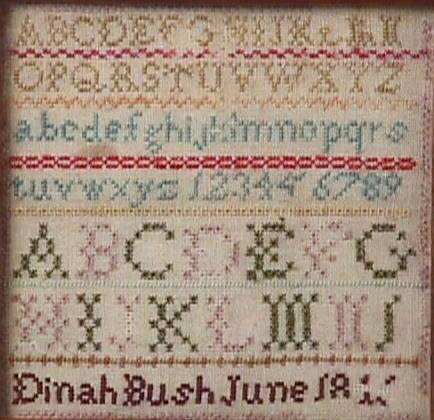 ABCDEFGHIJKLMN
OPQRSTUVWXYZ
abcdefghijklmnopqrs
tuvwxyz 12344 6789
ABCDEFG
HIJKLMNJ
Dinah Bush June